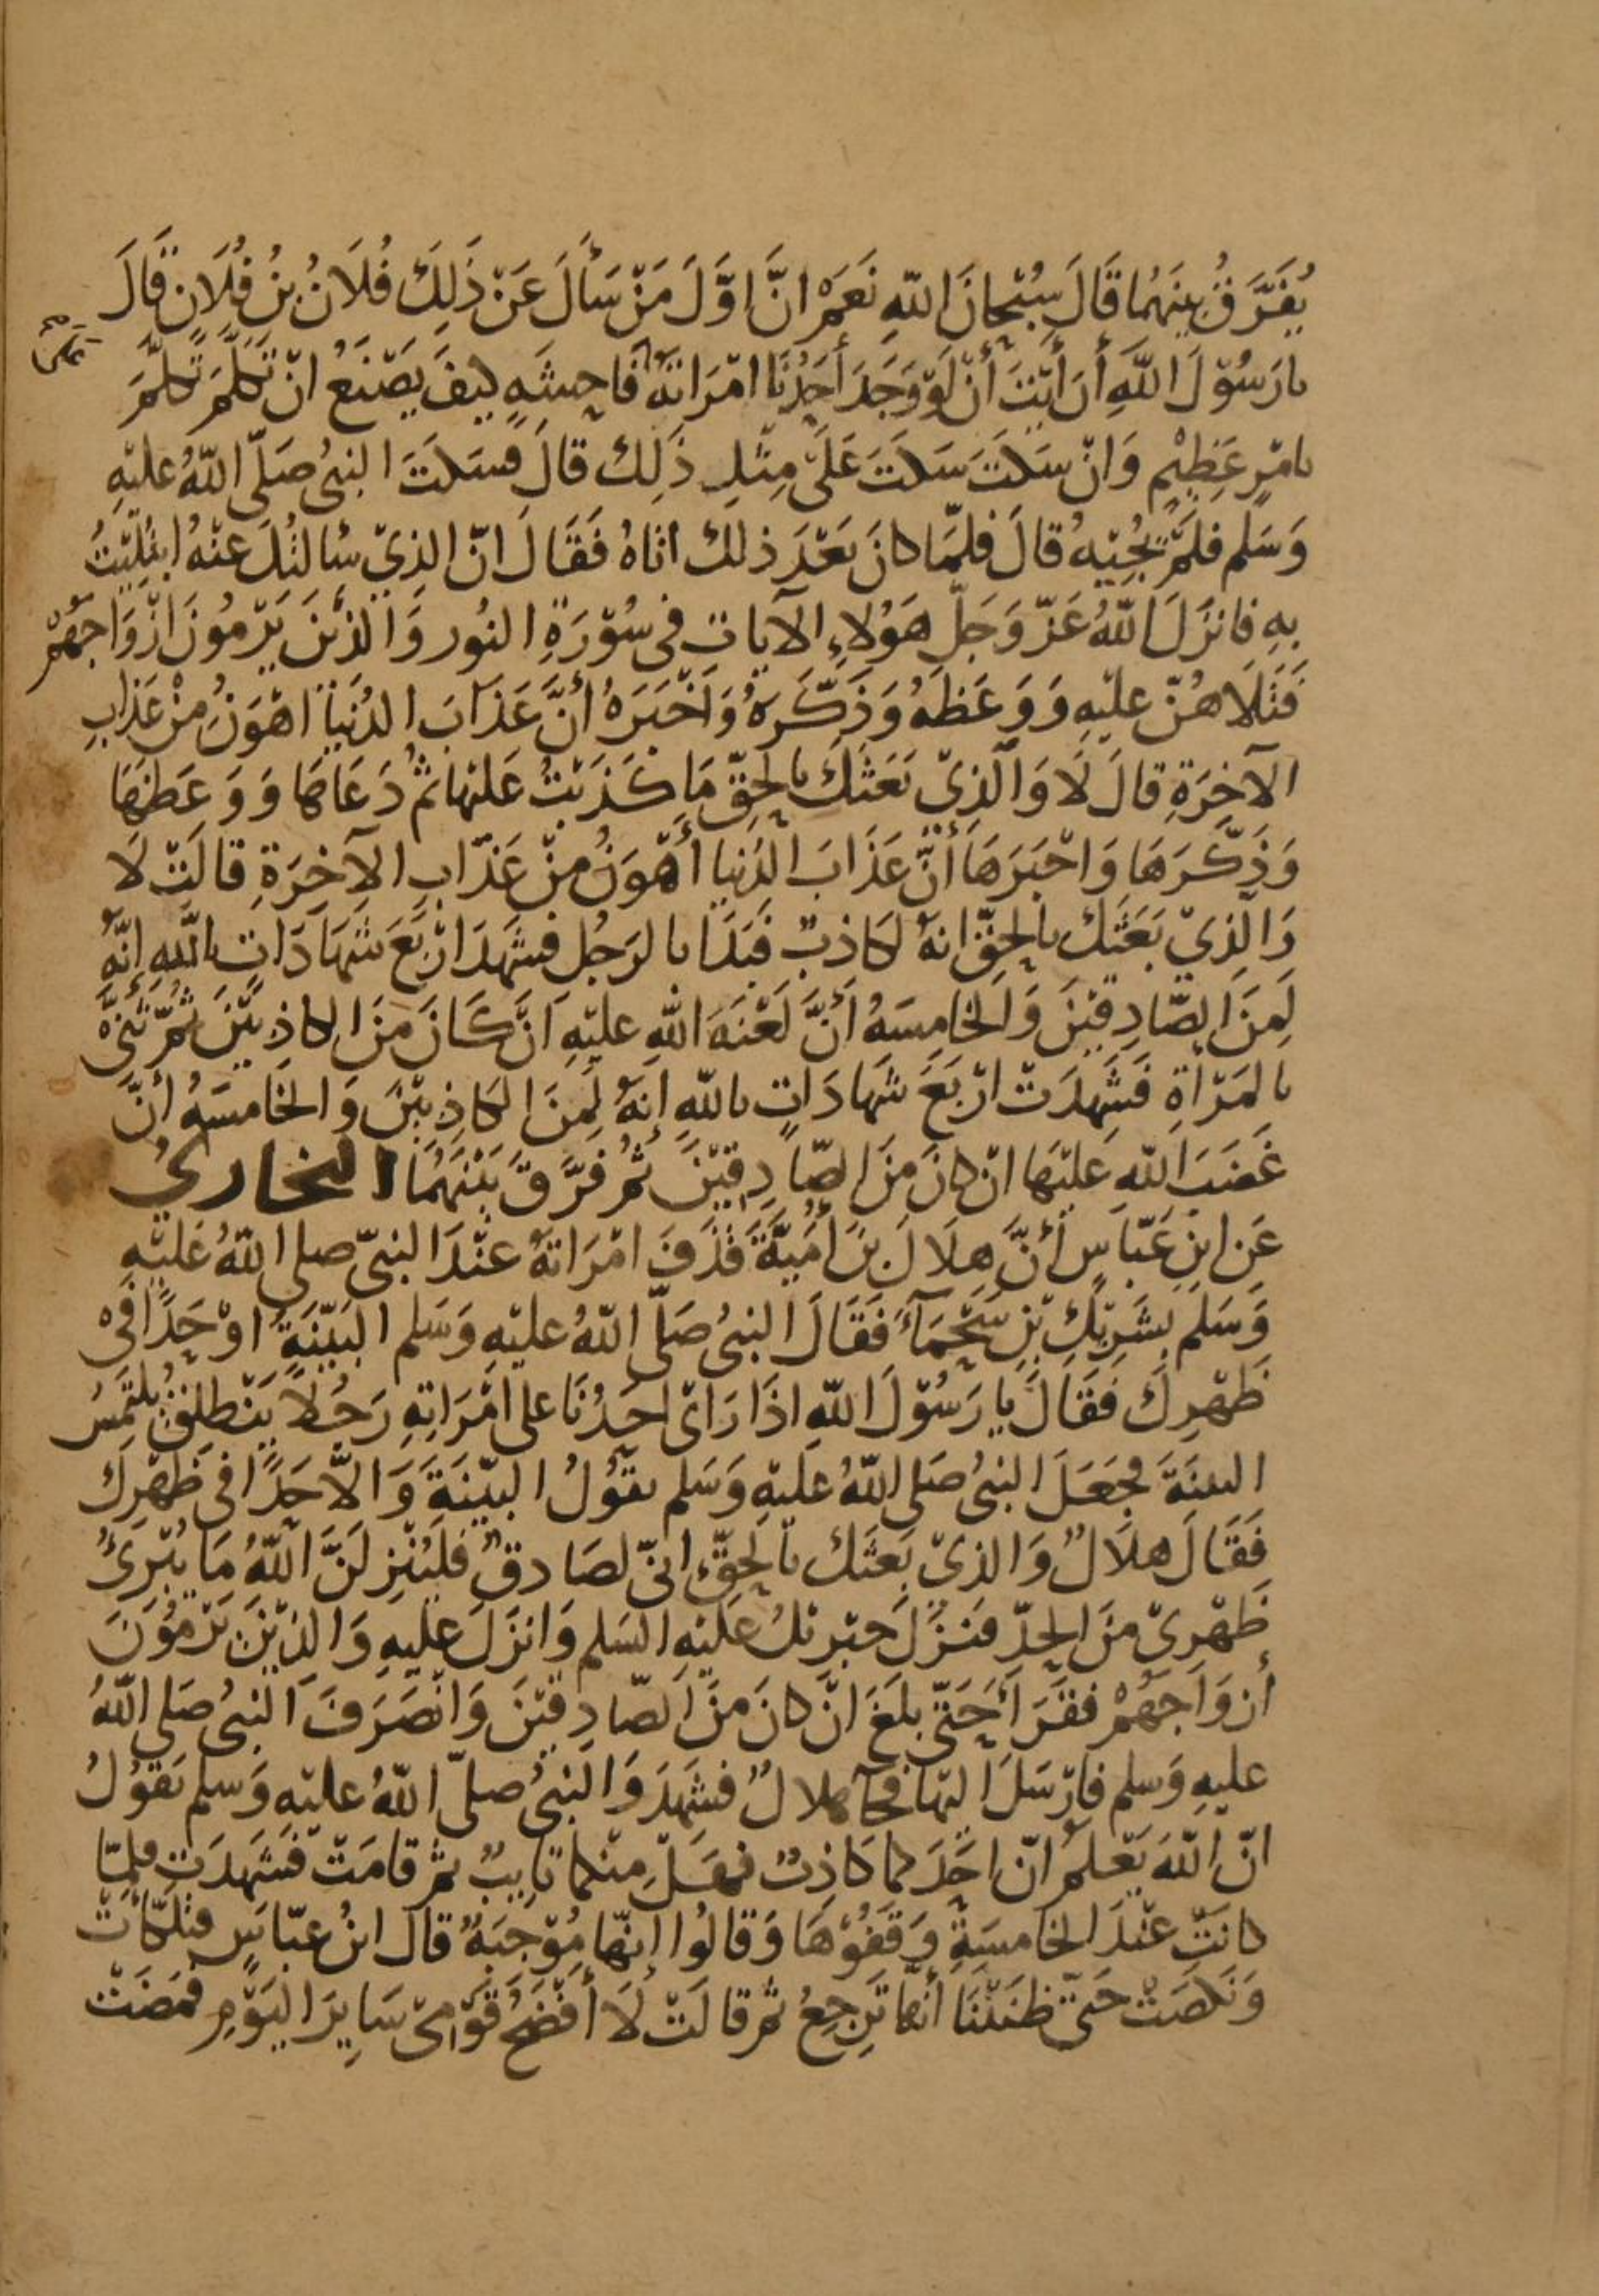 يُفَرَّقُ بينَهُمَا قَالَ سُبْحانَ اللهِ نَعَمْ انَّ اوَّلَ مَنْ سَأَلَ عَنْ ذَلِكَ فُلَانُ بنُ فُلَانٍ قَالَ
يا رَسُوْلَ اللهِ أَرَأيْتَ أنْ لَوْ وَجَدَ أَحَدُنَا امْرَاتَهُ فَاحِشَهٍ كيفَ يَصْنَعُ انْ تَكَلَّمَ تكلَّمَ
على
بامْرٍ عَظِيْمٍ وَانْ سَكَتَ سَكَتَ عَلَى مِثْلِ ذَلِكَ قالَ فسَكَتَ النبىُ صَلَّى اللهُ عليْهِ
وَسَلم فلمْ يُجِبْهُ قالَ فلمَّا كانَ بَعْدَ ذلك اتَاهُ فَقَالَ انّ الذِيْ سَالتُكَ عنْهُ ابْتُلِيْتُ
بهِ فانزَلَ اللهُ عَزّ وَجَلّ هَؤُلاءِ الآياتِ فى سُوْرَةِ النُورِ وَالذْيْنَ يَرْمُونَ ازْوَاجَهُمْ
فَتَلَاهُنّ عليْهِ وَوَعَظَهُ وَذَكَّرَهُ وَاَخْبَرَهُ أنَّ عَذَابَ الدُنْيَا اهْوَنُ مِنْ عَذَابِ
الآخِرَةِ قالَ لَا وَالَّذِيْ بَعَثَكَ بالحَقّ مَا كَذَبْتُ عَلَيْهَا ثُمَّ دَعَاهَا وَوَعَظَهَا
وَذَكَّرَهَا وَاخْبَرَهَا أنَّ عَذَابَ الدُنيا أهْوَنُ مِنْ عَذَابِ الآخِرَةِ قالَتْ لَا
وَالَّذِيْ بَعَثَكَ بالحَقّ انهُ لكَاذبٌ فبَدَا بالرَجُلِ فشَهِدَ ارْبَعَ شَهَادَاتٍ باللهِ إنّهُ
لَمِنَ الصّادِقِيْنَ وَالخَامِسَهُ أَنَّ لَعْنَهَ اللهِ عليْهِ انْ كَانَ مِنَ الكاذِبِيْنَ ثُمّ ثَنّى
بالمَرْأةِ فَشَهِدَتْ ارْبَعَ شَهَادَاتٍ باللهِ إنهُ لَمِنَ الكَاذِبِيْنَ وَالخَامسَهُ أنَّ
غَضَبَ اللهِ عَليْهَا انْ كانَ مِنَ الصّادِقِيْنَ ثُمَّ فَرَّقَ بَيْنَهُمَا البخاريُ
عَن ابنِ عَبّاسٍ أنَّ هِلَالَ بنَ اُمَيَّةَ قَذَفَ امْرَاتَهُ عنْدَ النبىّ صلى اللهُ عَليْهِ
وَسَلمَ بشَرِيْكِ بْنِ سَحْمَآءَ فَقَالَ النبىُ صَلّى اللهُ عليْهِ وَسَلم البَيِّنَةَ اوْ حَدًّا فىْ
ظَهْرِكَ فَقَالَ يا رَسُوْلَ اللهِ اذَا رَاى احَدُنَا على امْرَاتِهِ رَجُلا يَنْطلِقُ يلتَمِسُ
البينَةَ فجَعَلَ النبىُ صَلى اللهُ عَليْهِ وَسَلم يقُوْلُ البيِّنَةَ وَالاّ حَدًّا فى ظَهْرِكَ
فَقَالَ هلَالٌ وَالذيْ بَعثَكَ بالحَقِّ انىّ لصَادقٌ فلَيُنْزِلَنَّ اللهُ مَا يُبْرِئُ
ظَهْرِىْ مِنَ الحدّ فنزَلَ جبْريْلُ عَلَيْهِ السَلم وَانزَلَ عليْهِ وَالذيْنَ يَرْمُوْنَ
أزوَاجَهُمْ فقَرَأ حَتّى بلغَ انْ كانَ مِنَ الصّادِقيْنَ وَانْصَرَفَ النبىُ صَلى اللهُ
عليهِ وَسلم فارْسَلَ اليْهَا فجآ هلالٌ فشَهِدَ وَالنبىُ صلىّ اللهُ عليْهِ وَسلم يَقُوْلُ
انّ اللهَ يَعْلمُ انّ احَدَكما كَاذِبٌ فهَلْ مِنْكما تايِبٌ ثمّ قامَتْ فشَهِدَتْ فلمّا
كانَتْ عنْدَ الخَامسَةِ وَقَفُوْهَا وَقالُوا إنّها مُوْجِبَةٌ قال ابنُ عبّاسٍ فتلَكّأتْ
وَنَكَصَتْ حَتّى ظنَنّنَا أنهَا تَرجِعُ ثمّ قالَتْ لَا أفْضَحُ قَوْمِىْ سَايِرَ اليَوْمِ فمَضَتْ